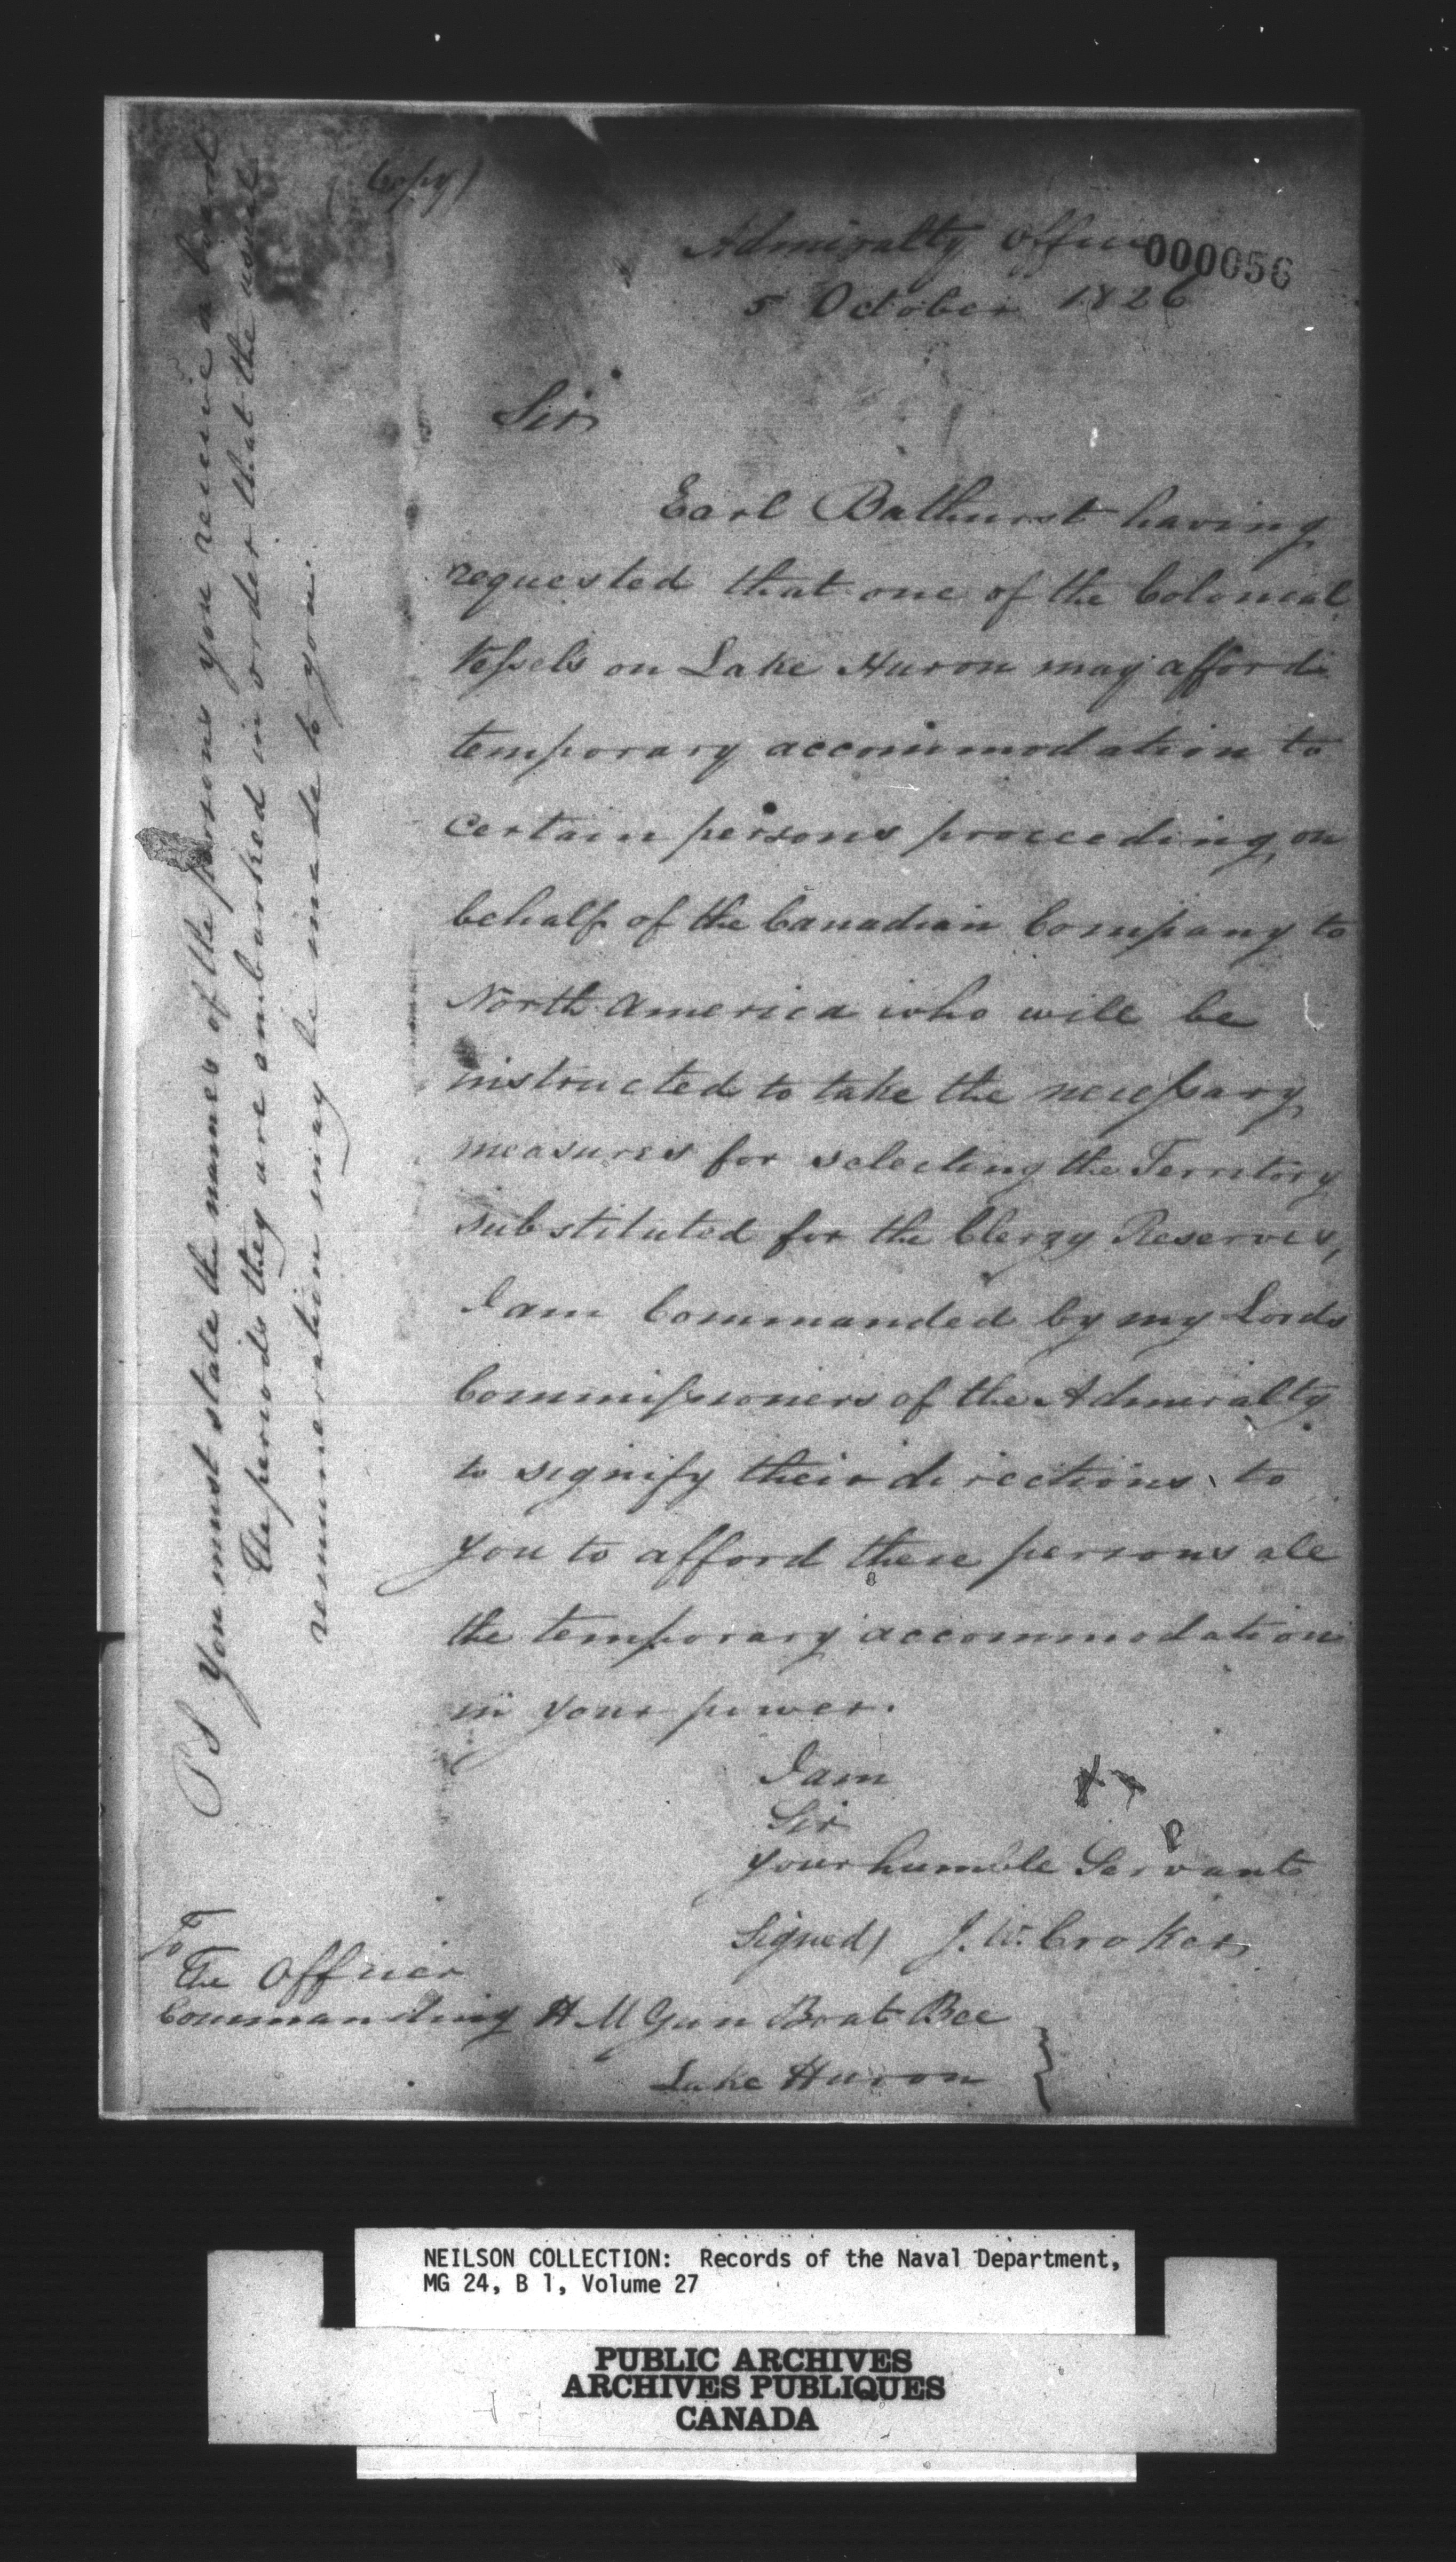 Copy)
Admiralty Office
000056
5 October 1826
Sir
Earl Bathurst having
requested that one of the Colonial
Vessels on Lake Huron may afford
temporary accommodation to
certain persons proceeding on
behalf of the Canadian Company to
North America who will be
instructed to take the necessary
measures for selecting the Territory
substituted for the Clergy Reserves,
I am Commanded by my Lords
Commissioners of the Admiralty
to signify their directions to
you to afford these persons all
the temporary accommodation
in your power.
I am
Sir
your humble Servant
Signed) J. W. Croker
To
The Officer
Commanding H M Gun Boat Bee
Lake Huron
PS You must state the names of the persons you receive on board
The periods they are embarked in order that the usual
remuneration may be made to you.
NEILSON COLLECTION: Records of the Naval Department,
MG 24, B 1, Volume 27
PUBLIC ARCHIVES
ARCHIVES PUBLIQUES
CANADA